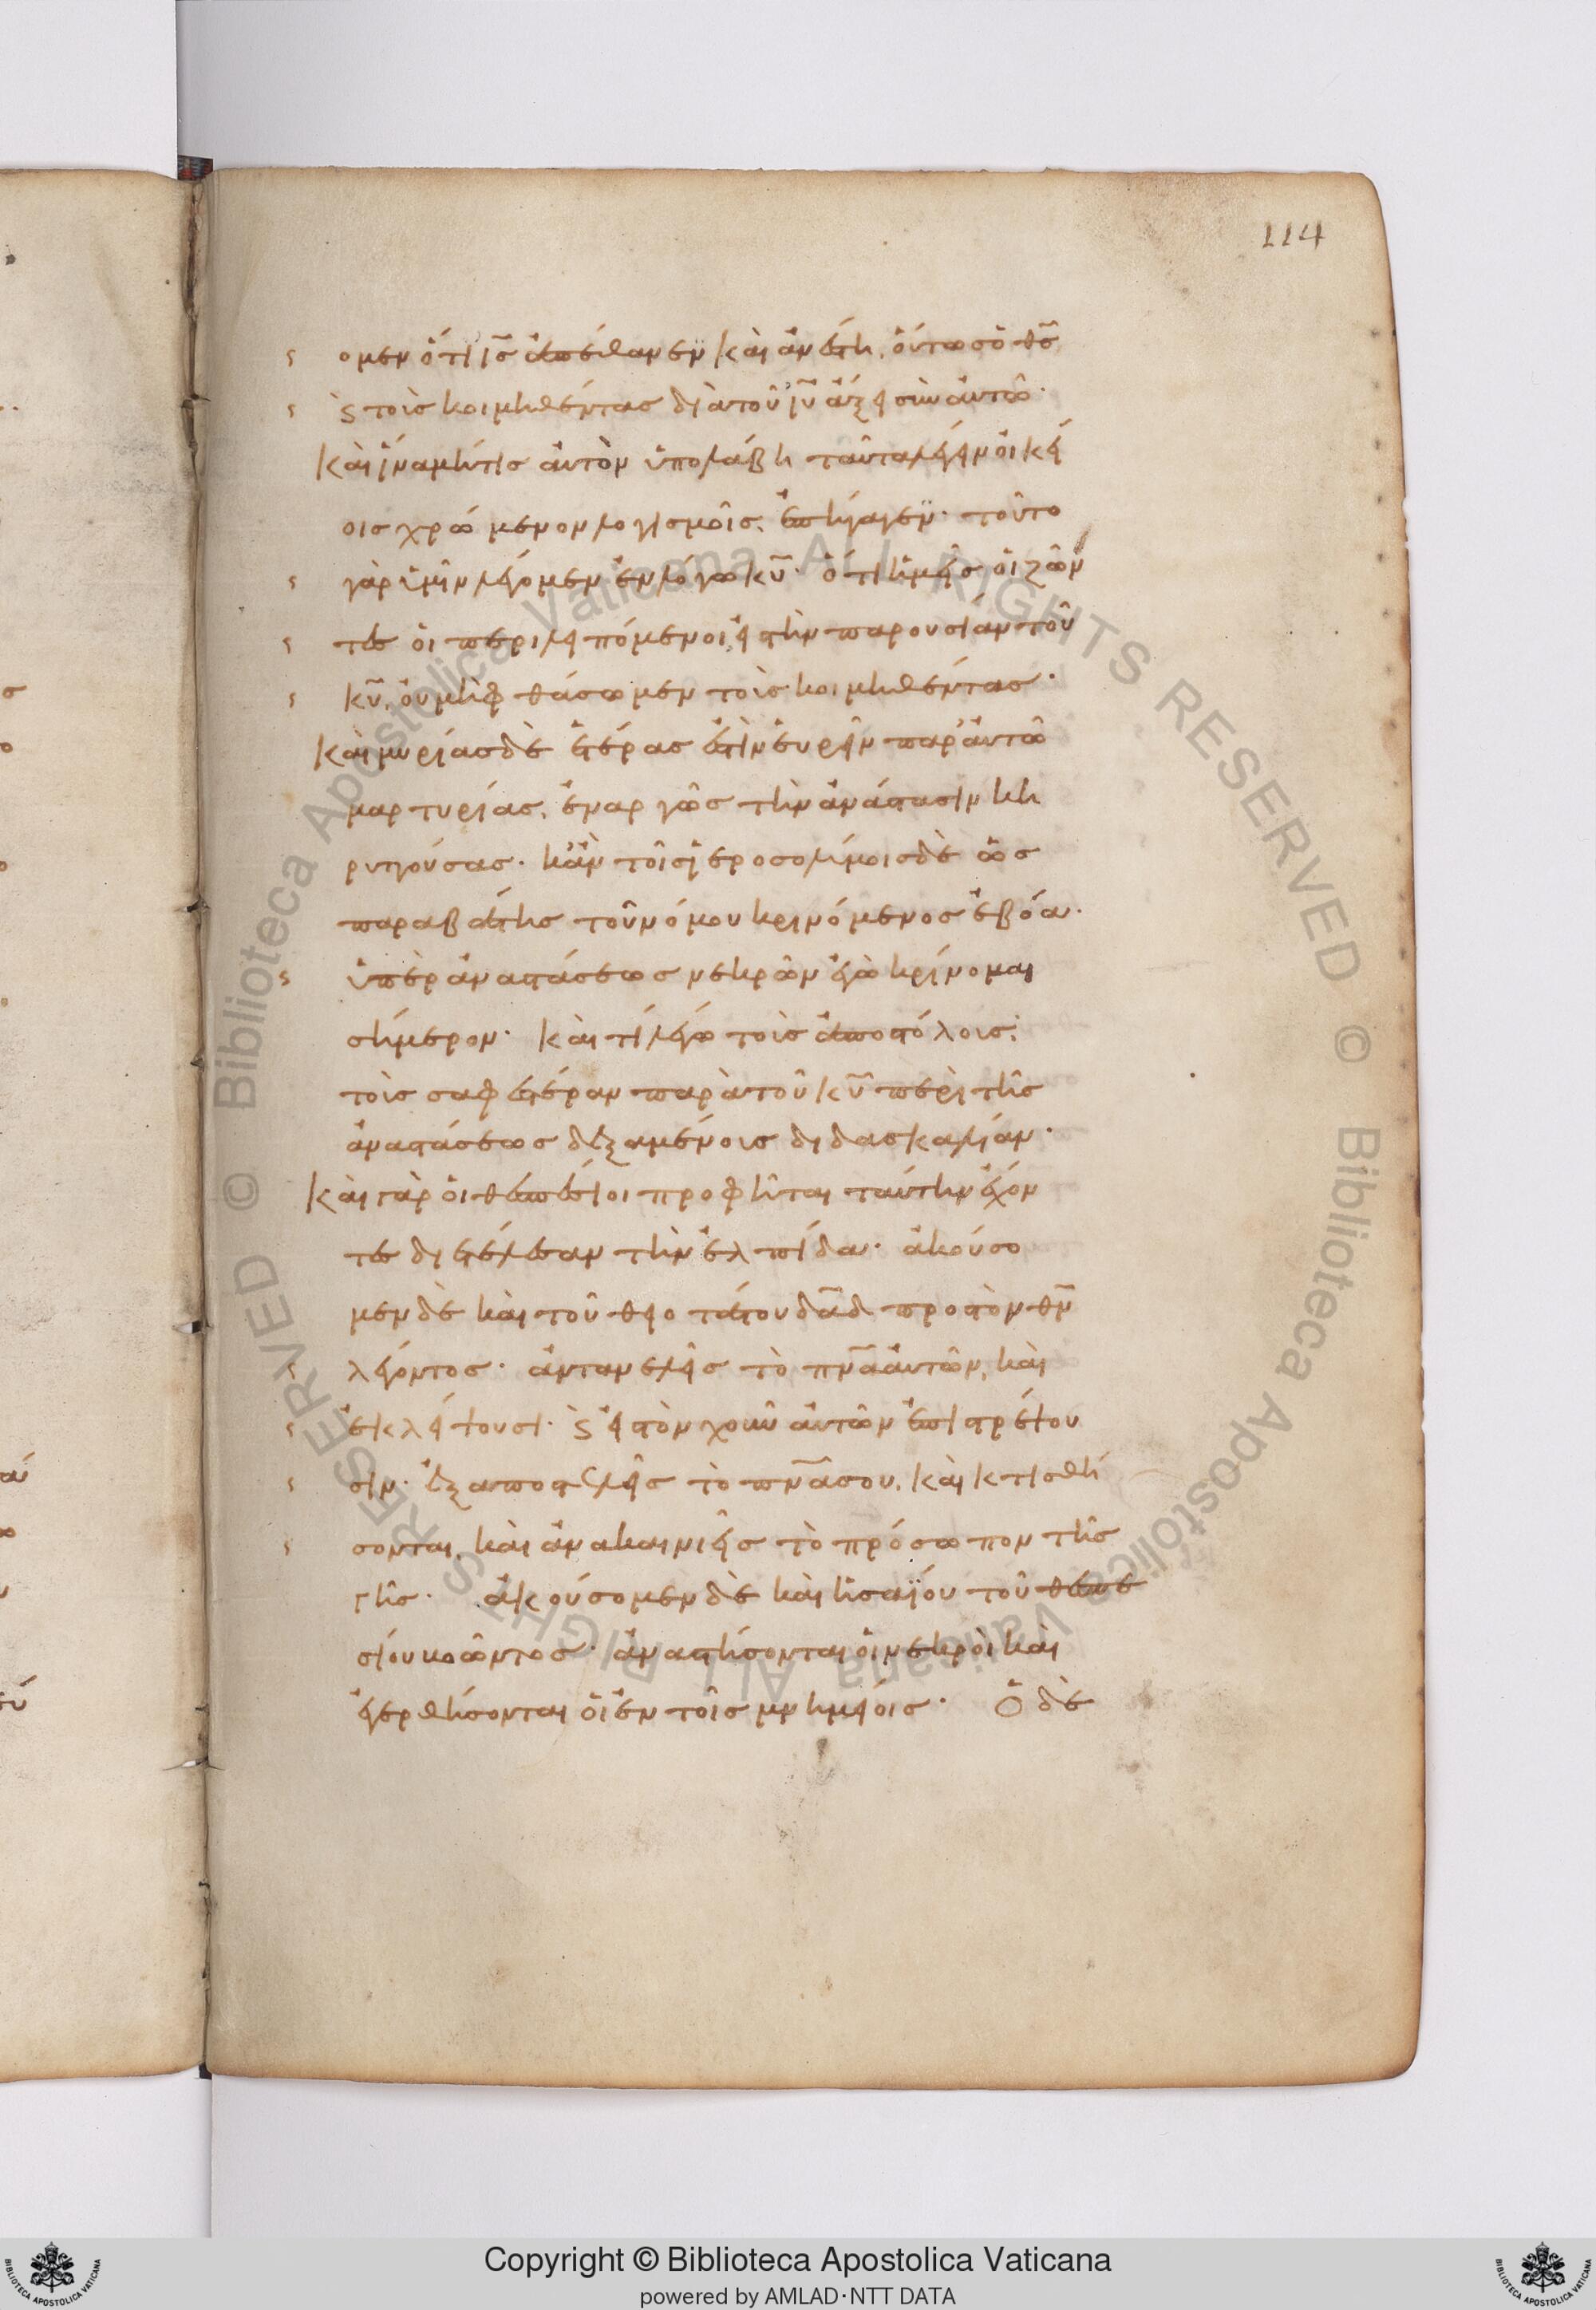 114
ομεν ὅτι ἰ̅ς̅ ἀπέθανεν καὶ ἀνέστη, οὕτως ὁ θ̅ς̅
ϛ τοὺς κοιμηθέντας διὰ τοῦ ἰ̅υ̅ ἄξει σὺν αὐτῶ·
καὶ ἵνα μήτις αὐτὸν ὑπολάβη ταῦτα λέγειν οἰκεί
οις χρώμενον λογισμοῖς, ἐπήγαγεν· τοῦτο
γὰρ ὑμῖν λέγομεν ἐν λόγω κ̅υ̅· ὅτι ἡμεῖς οἱ ζῶν
τες οἱ περιλειπόμενοι εἰς τὴν παρουσίαν τοῦ
κ̅υ̅, οὐ μὴ φθάσωμεν τοὺς κοιμηθέντας·
καὶ μυρίας δὲ ἑτέρας ἔστιν εὑρεῖν παρ' αὐτῶ
μαρτυρίας, ἐναργῶς τὴν ἀνάστασιν κη
ρυττούσας· κἂν τοῖς ἱεροσολύμοις δὲ ὡς
παραβάτης τοῦ νόμου κρινόμενος ἐβόα·
ὑπὲρ ἀναστάσεως νεκρῶν ἐγὼ κρίνομαι
σήμερον· καὶ τί λέγω τοὺς ἀποστόλους;
τοὺς σαφεστέραν παρὰ τοῦ κ̅υ̅ περὶ τῆς
ἀναστάσεως δεξαμένους διδασκαλίαν·
καὶ γὰρ οἱ θεσπέσιοι προφῆται ταύτην ἔχον
τες διετέλεσαν τὴν ἐλπίδα· ἀκούσο
μεν δὲ καὶ τοῦ θειοτάτου δ̅α̅δ̅ πρὸς τὸν θ̅ν̅
λέγοντος· ἀντανελεῖς τὸ π̅ν̅α̅ αὐτῶν, καὶ
ἐκλείψουσι· ϛ εἰς τὸν χοῦν αὐτῶν ἐπιστρέψου
σιν· ἐξαποστελεῖς τὸ π̅ν̅α̅ σου, καὶ κτισθή
σονται, καὶ ἀνακαινιεῖς τὸ πρόσωπον τῆς
γῆς· ἀκούσομεν δὲ καὶ ἡσαΐου τοῦ θεσπε
σίου βοῶντος· ἀναστήσονται οἱ νεκροὶ καὶ
ἐγερθήσονται οἱ ἐν τοῖς μνημείοις· Ὁ δὲ
Copyright © Biblioteca Apostolica Vaticana
powered by AMLAD·NTT DATA